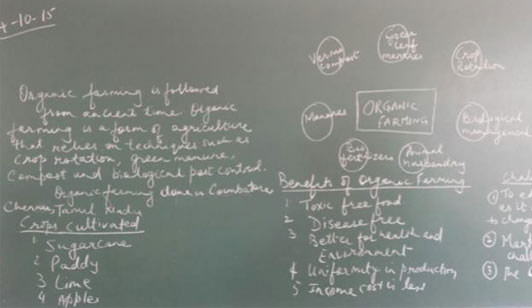 4-10-15
Organic farming is followed
from ancient time. Organic
farming is a form of agriculture
that relies on techniques such as
Crop rotation, green manure,
Compost and biological pest control.
Organic farming done in Coimbatore
Chennai, Tamil Nadu
Crops cultivated
1 Sugarcane
2 Paddy
3 Lime
4 Apples
Vermi compost
Green leaf manures
Crop rotation
Manures
ORGANIC FARMING
Biological management
Bio fertilizers
Animal husbandry
Benefits of Organic farming
1 Toxic free food
2 Disease free
3 Better for health and
Environment
4 Uniformity in production
5 Income cost is less
Chall
① To
as it
to chang
② Mark
chall
③ The